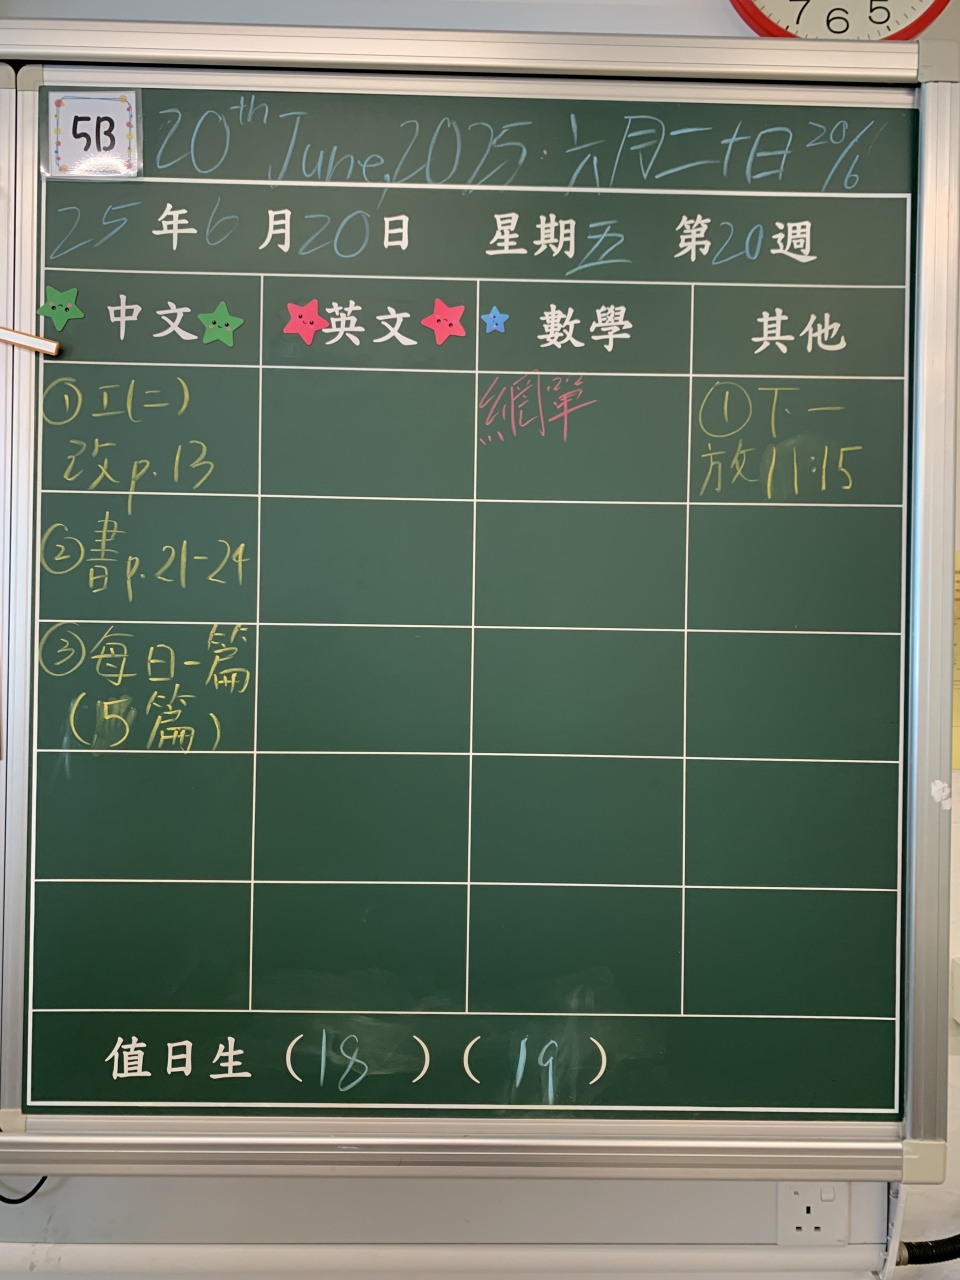 7 6 5
5B 20th June, 2025. 六月二十日 20/6
25年6月20日 星期五 第20週
中文 英文 數學 其他
①工(二)
改p.13
網單
①下一
放11:15
②書p.21-24
③每日一篇
(5篇)
值日生(18)(19)